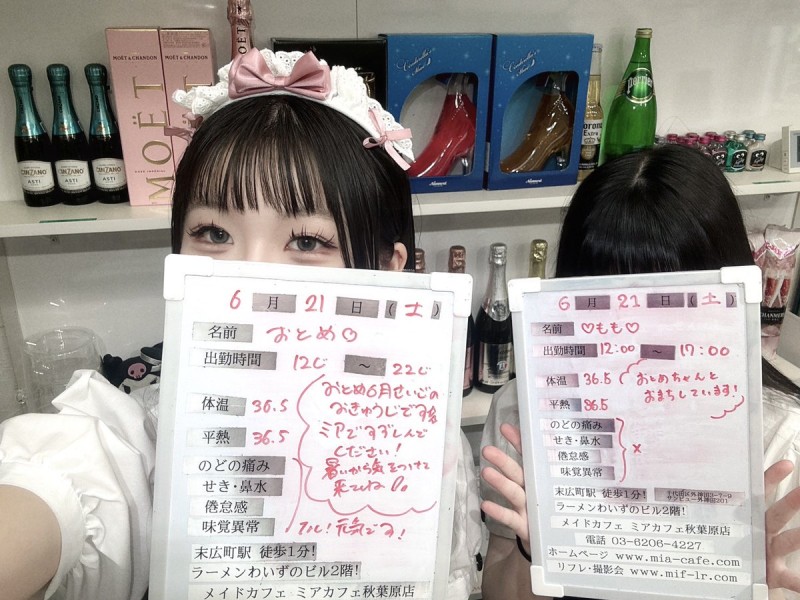 MOËT & CHANDON
MOËT & CHANDON
MOËT
CINZANO
ASTI
CINZANO
ASTI
CINZANO
ASTI
Corona
Perrier
6月21日(土)
名前 おとめ♡
出勤時間 12じ ～ 22じ
体温 36.5
平熱 36.5
のどの痛み
せき・鼻水
倦怠感
味覚異常
おとめ6月せいごの
おきゅうじです
ミアですずしんで
ください!
暑いから気をつけて
来てね
元気です!
末広町駅 徒歩1分!
ラーメンわいずのビル2階!
メイドカフェ ミアカフェ秋葉原店
6月21日(土)
名前 ♡もも♡
出勤時間 12:00 ～ 17:00
体温 36.5
平熱 36.5
のどの痛み
せき・鼻水
倦怠感
味覚異常
×
おとめちゃんと
おまちしています!
末広町駅 徒歩1分!
ラーメンわいずのビル2階!
メイドカフェ ミアカフェ秋葉原店
電話 03-6206-4227
ホームページ www.mia-cafe.com
リフレ・撮影会 www.mif-lr.com